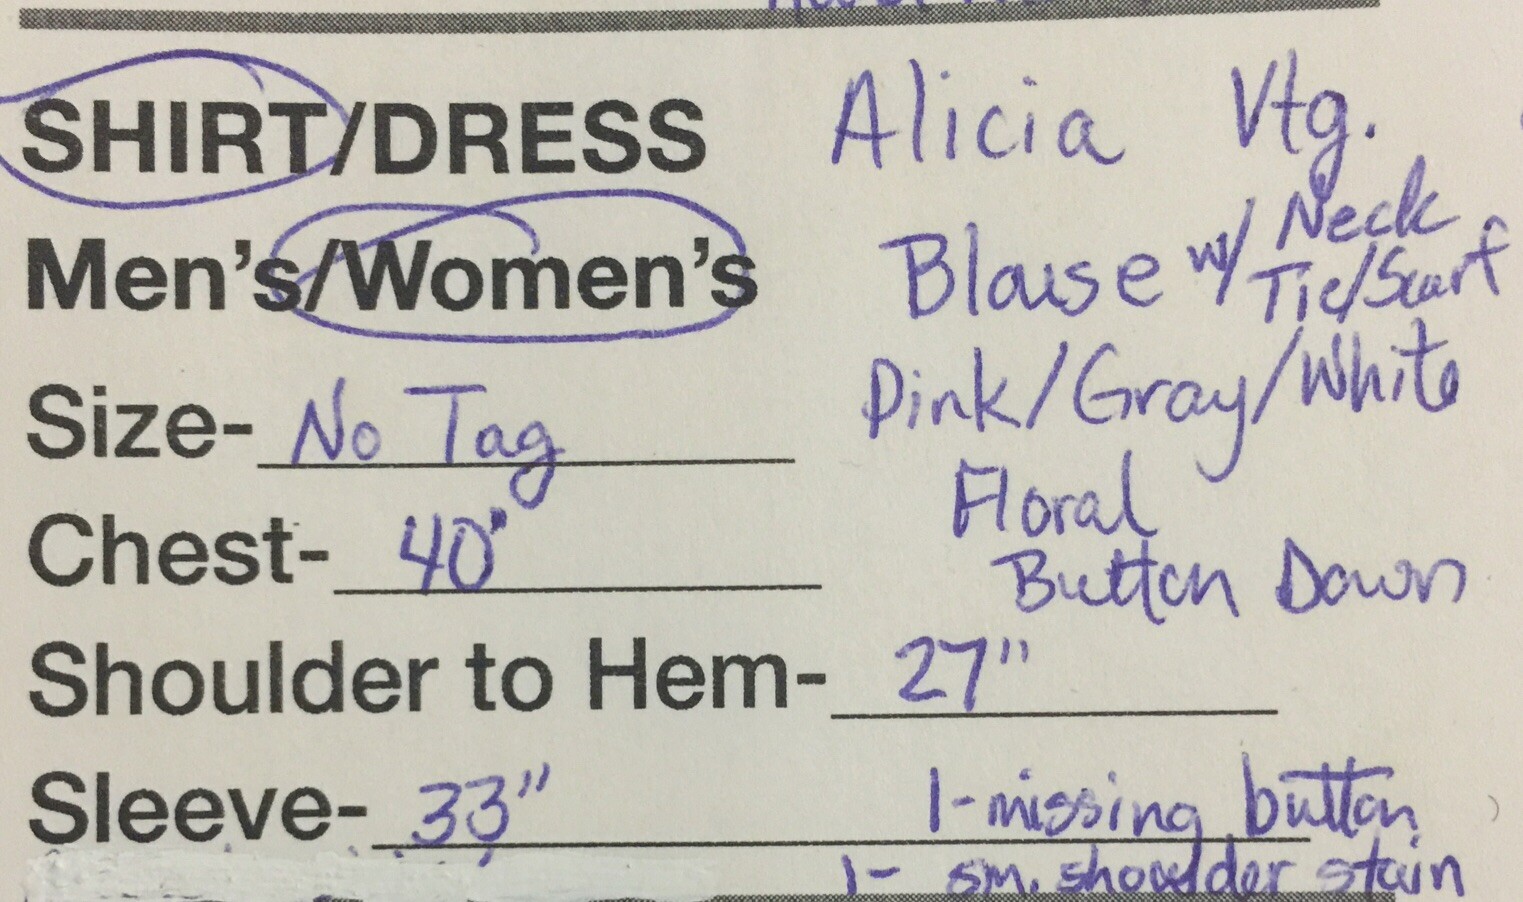 SHIRT/DRESS Alicia Vtg.
Men's/Women's Blouse w/ Neck Tie/Scarf
Pink/Gray/White
Size- No Tag
Floral
Chest- 40"
Button Down
Shoulder to Hem- 27"
Sleeve- 33" 1-missing button
1- sm. shoulder stain